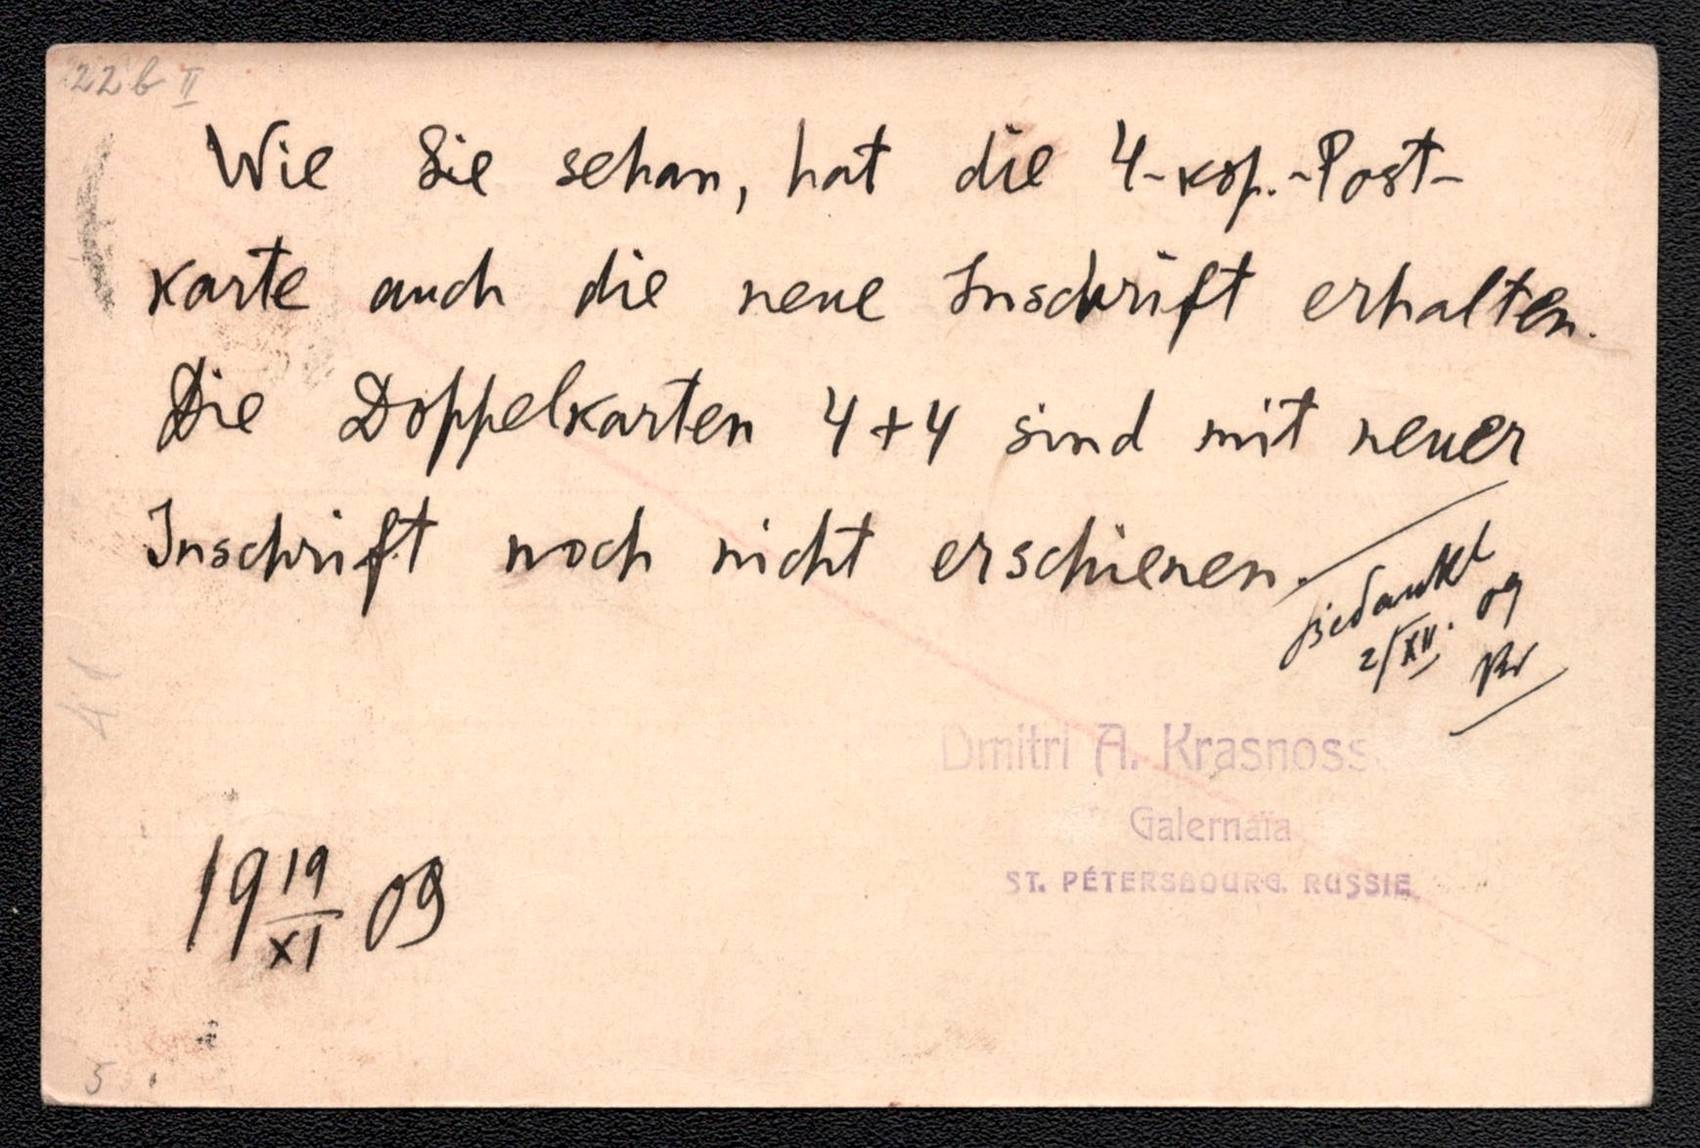 22 b II
Wie Sie sehan, hat die 4-kop.-Post-
karte auch die neue Inschrift erhalten.
Die Doppelkarten 4+4 sind mit neuer
Inschrift noch nicht erschienen.
2/XII. 09
41
Dmitri A. Krasnoss
Galernaïa
ST. PÉTERSBOURG. RUSSIE.
19 19/XI 09
5